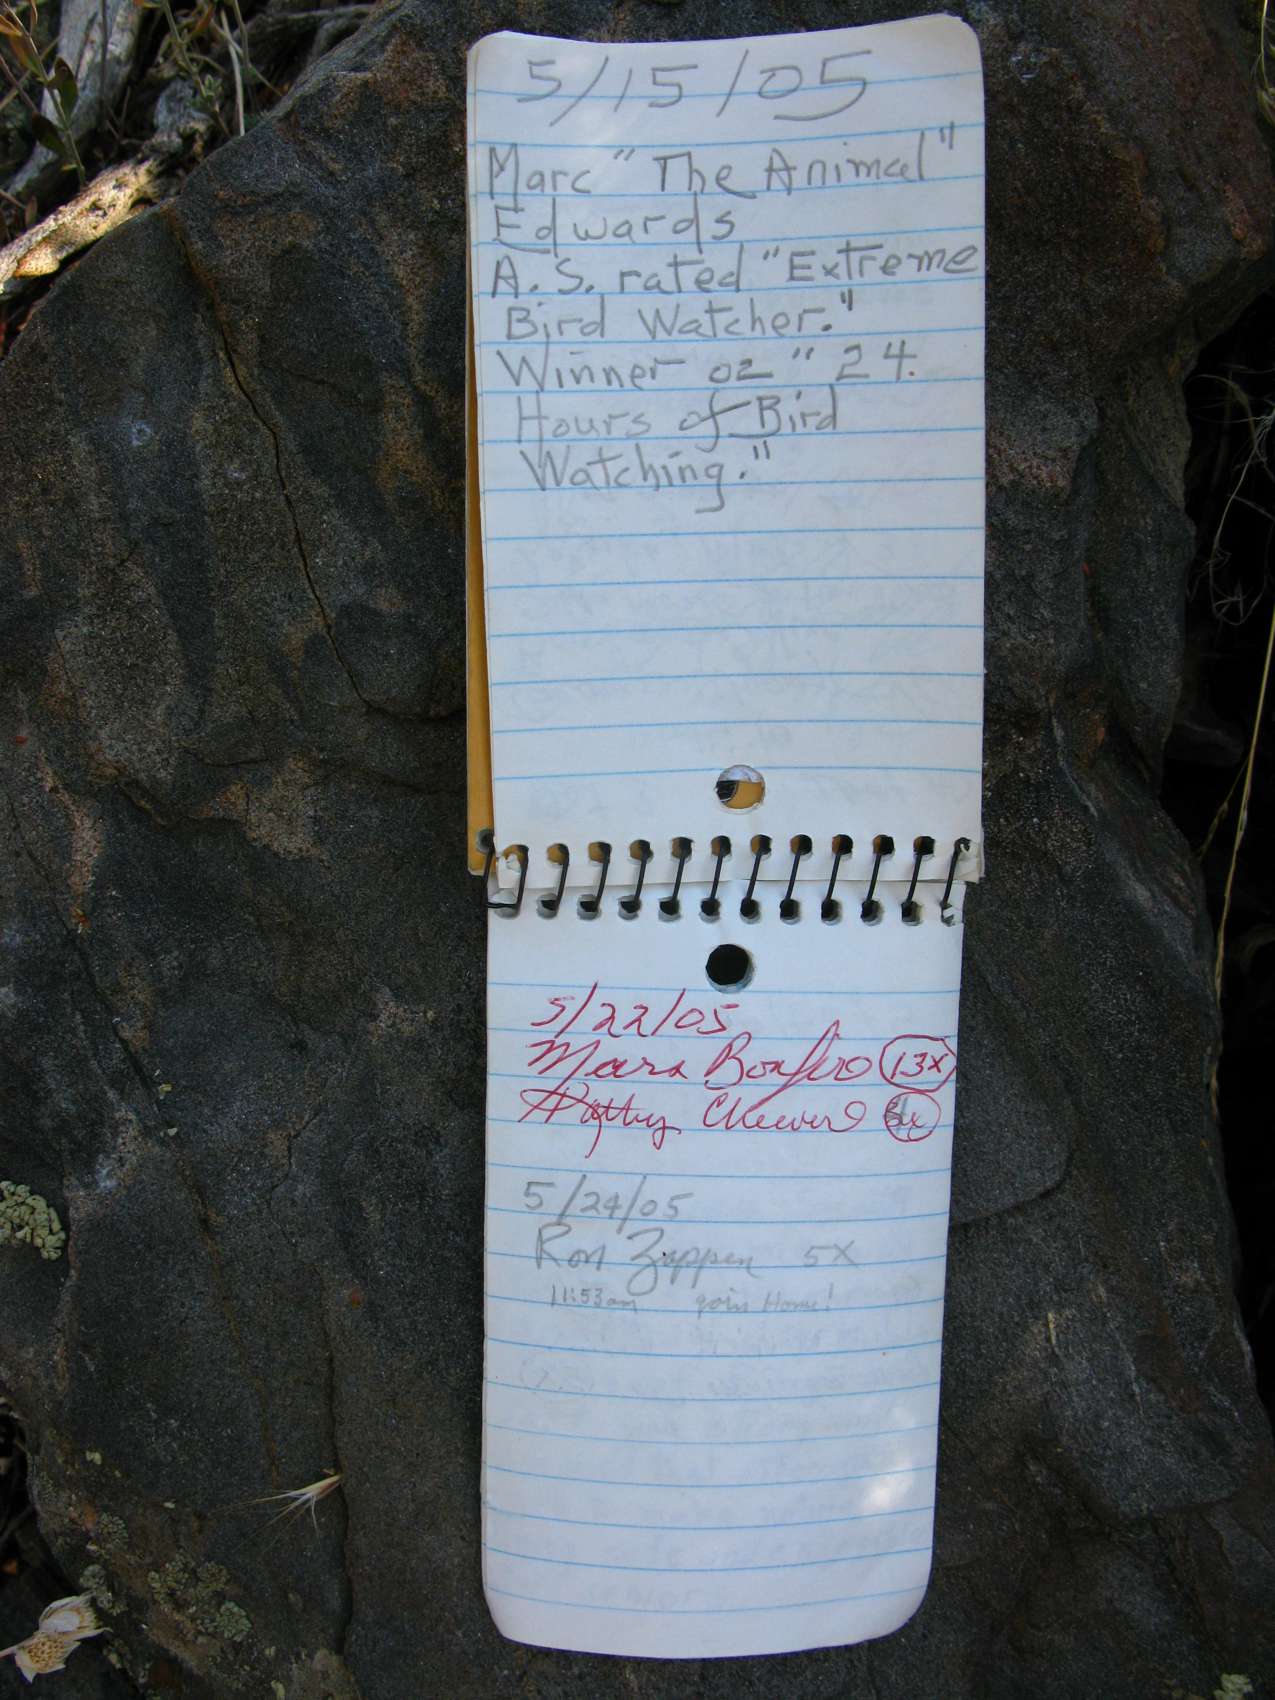 5/15/05
Marc "The Animal"
Edwards
A.S. rated "Extreme
Bird Watcher."
Winner 02 " 24
Hours of Bird
Watching."
5/22/05
Mars Bonfiro 13x
Kathy Cheever
5/24/05
Ron Zappen 5X
11:53am goin Home!